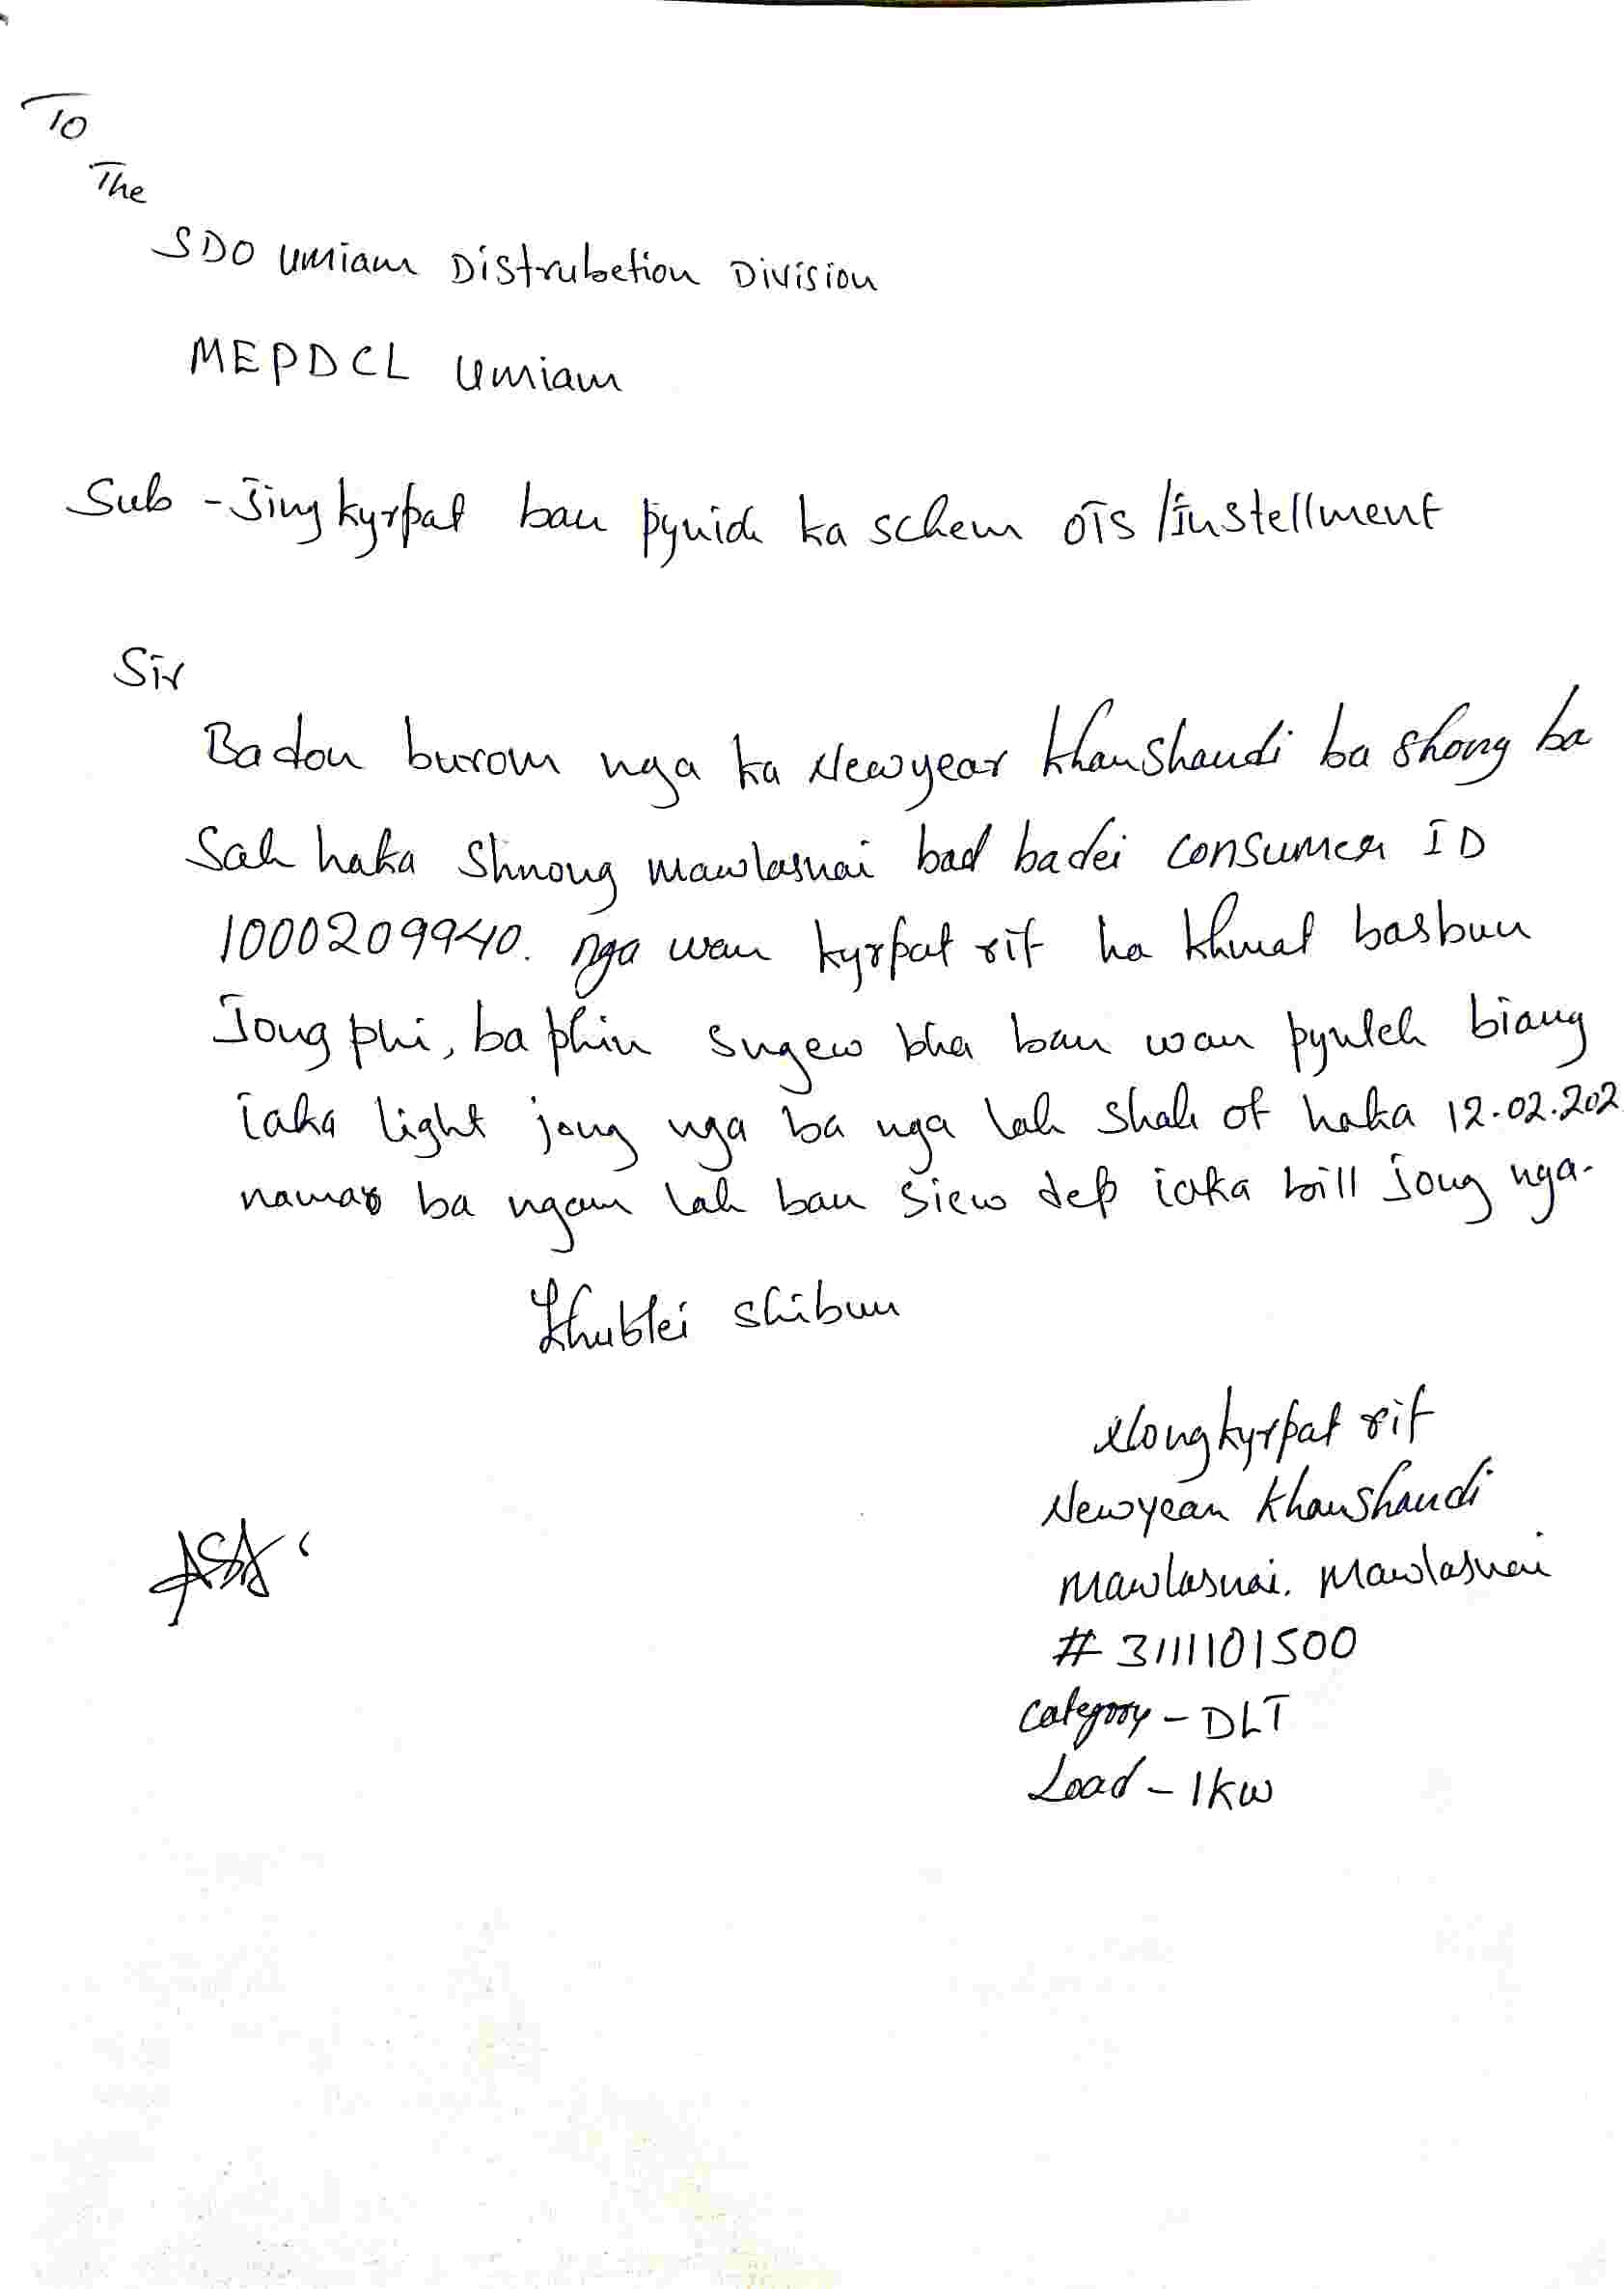 To
The
SDO Umiam Distrubetion Division
MEPDCL Umiam
Sub - Jingkyrpat ban pynid ka schem OTS /Instellment
Sir
Badon burom nga ka Newyear Khanshandi ba shong ba
Sah haka Shnong Mawlasnai bad badei Consumer ID
1000209940. nga wan kyrpat rit ha khmat basbun
Jong phi, ba phin sngew bha ban wan pynleh biang
iaka light jong nga ba nga lah shah of haka 12.02.202
namar ba ngam lah ban siew dep iaka bill jong nga.
Khublei shibun
Nongkyrpat rit
Newyear Khanshandi
Mawlasnai. Mawlasnai
# 3111101500
Category - DLT
Load - 1kw